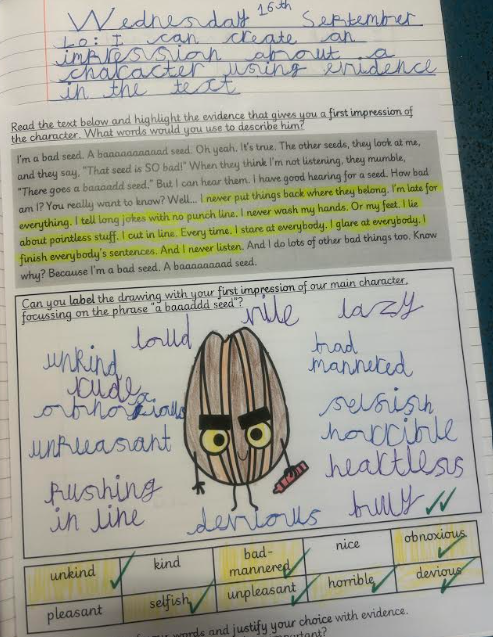 Wednesday 16th September
Lo: I can create an
impression about a
character using evidence
in the text
Read the text below and highlight the evidence that gives you a first impression of
the character. What words would you use to describe him?
I'm a bad seed. A baaaaaaaaad seed. Oh yeah. It's true. The other seeds, they look at me,
and they say, "That seed is SO bad!" When they think I'm not listening, they mumble,
"There goes a baaaadd seed." But I can hear them. I have good hearing for a seed. How bad
am I? You really want to know? Well... I never put things back where they belong. I'm late for
everything. I tell long jokes with no punch line. I never wash my hands. Or my feet. I lie
about pointless stuff. I cut in line. Every time. I stare at everybody. I glare at everybody. I
finish everybody's sentences. And I never listen. And I do lots of other bad things too. Know
why? Because I'm a bad seed. A baaaaaaaad seed.
Can you label the drawing with your first impression of our main character,
focussing on the phrase "a baaaddd seed"?
loud
vile
lazy
unkind
rude
bad
mannered
unpleasant
selfish
horrible
heartless
pushing
in line
devious
bully
unkind kind bad-mannered nice obnoxious
pleasant selfish unpleasant horrible devious
words and justify your choice with evidence.